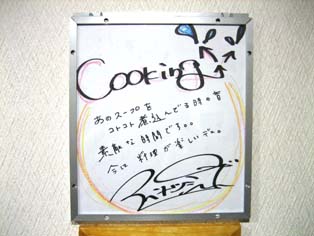 Cooking
あのスープを
コトコト煮込んでる時の音
素敵な時間です。。
今は 料理が楽しいデー。